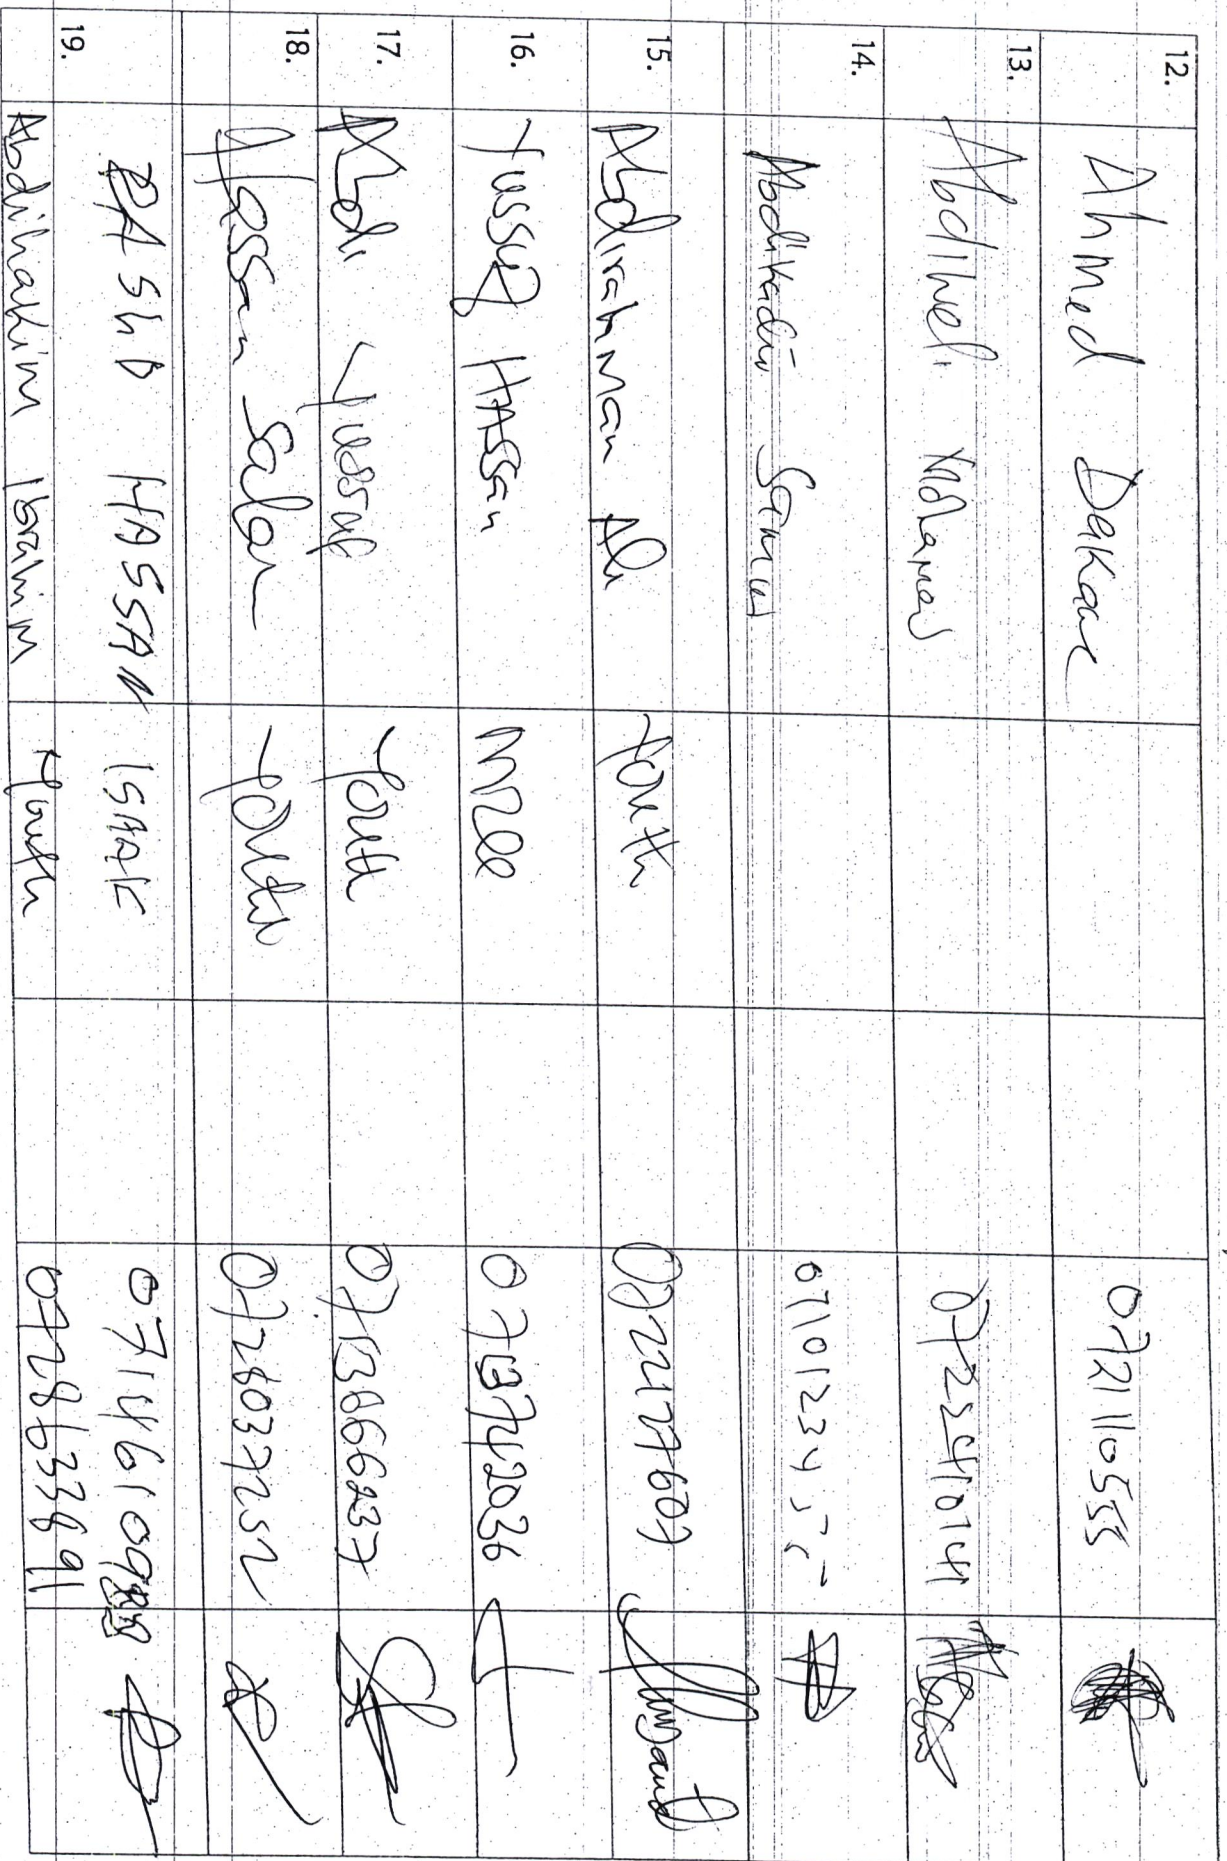 12. Ahmed Dakane 0721110555
13. Abdiweli Mohamed 0723541014
14. Abdikadir 0710123455
15. Abdirahman Ali Youth 0722177607
16. Yussuf Hassan Mzee 0713742036
17. Abdi Yussuf Youth
18. Hassan Salan Youth 0728037252
RASHID HASSAN ISAAK
19. Abdihakim Ibrahim Youth 0728633891